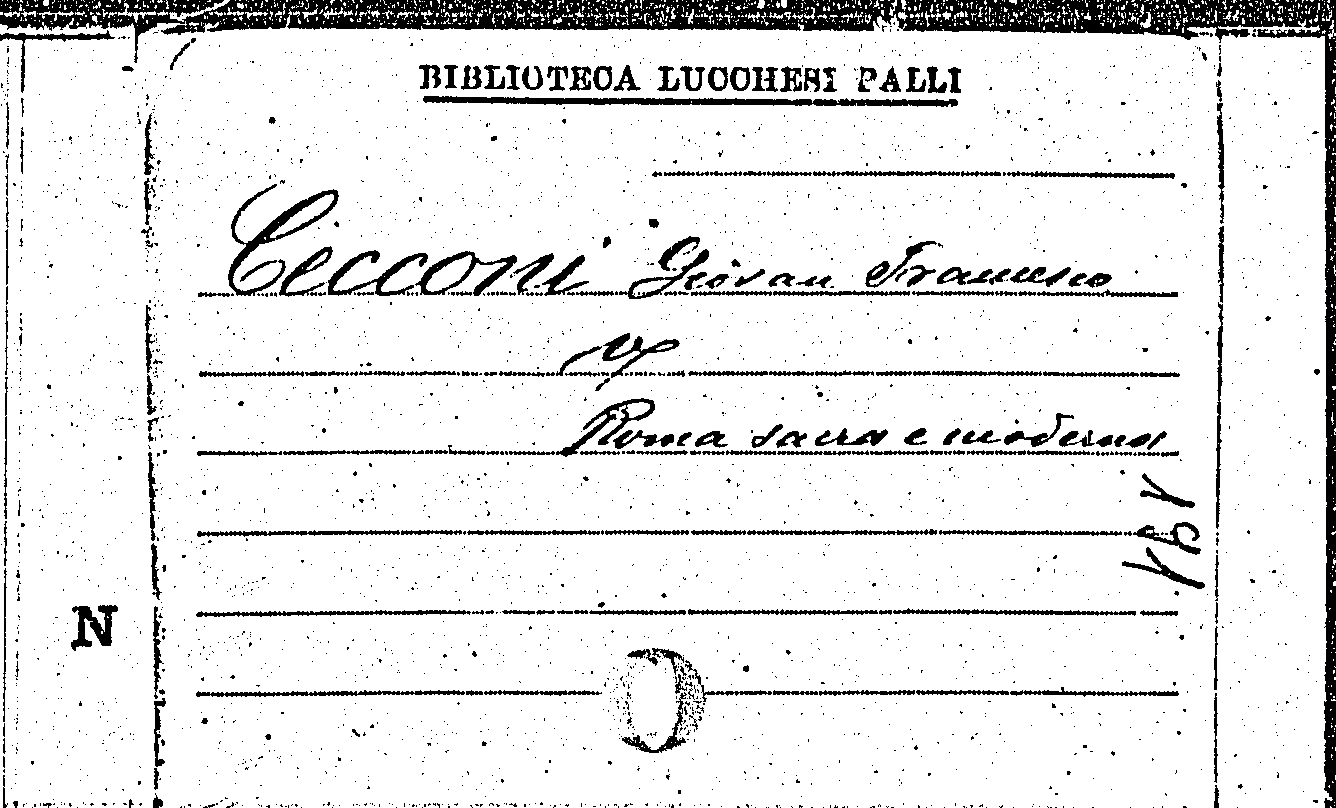 BIBLIOTECA LUCCHESI PALLI
Cecconi Giovan Francesco
Roma sacra e moderna
N